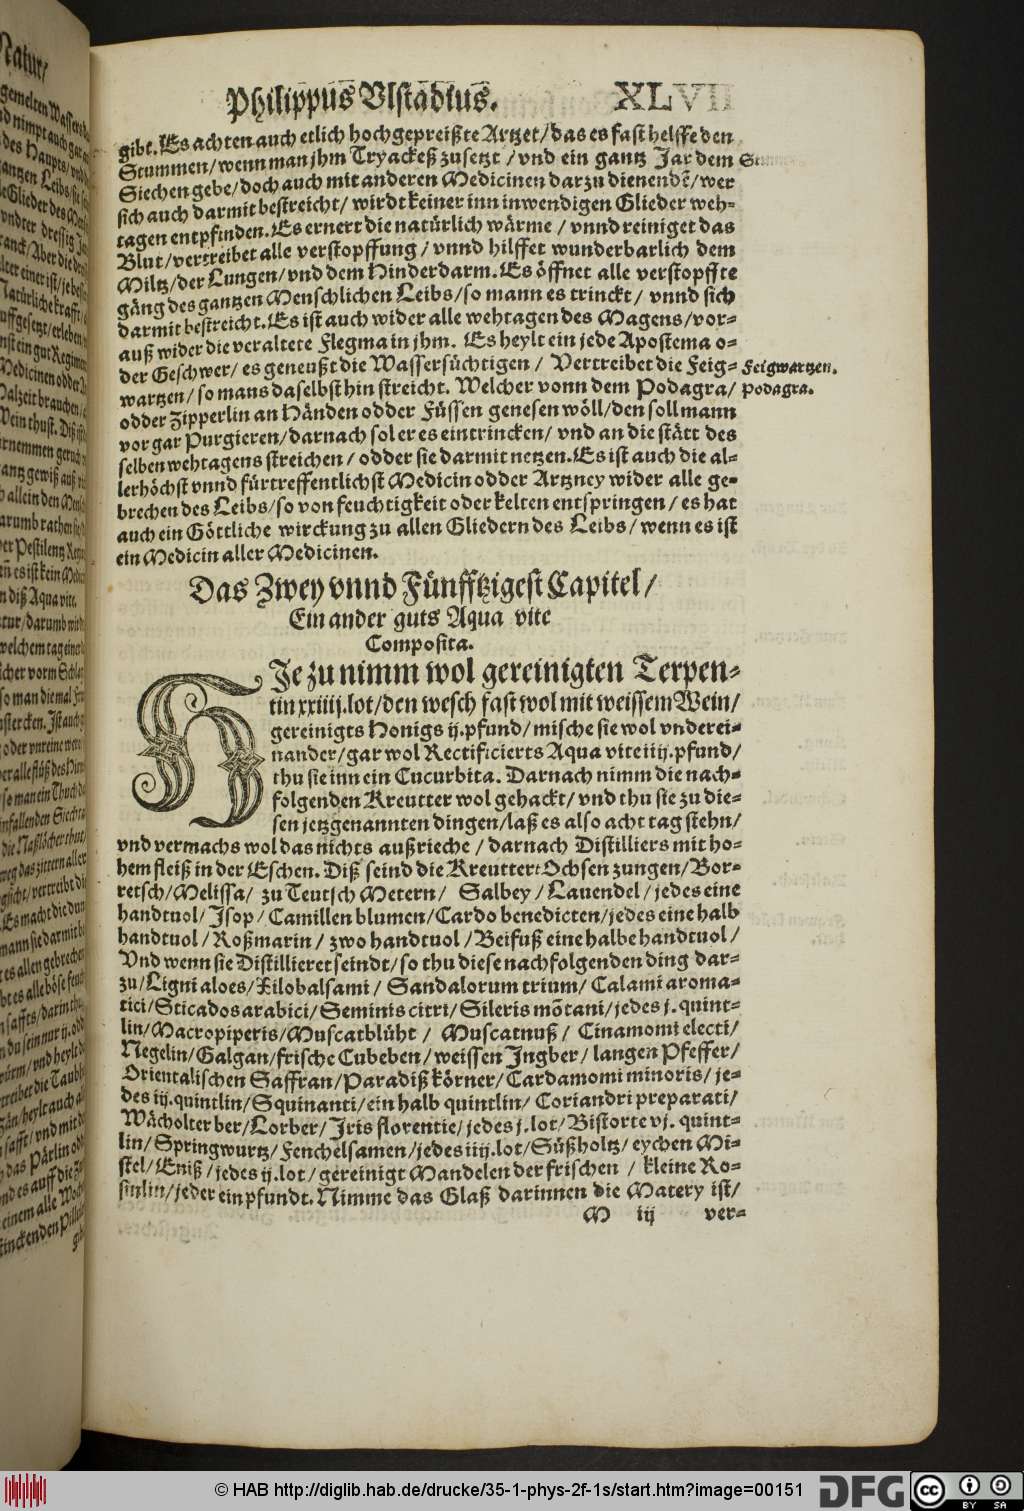 Philippus Vlstadius. XLVII
gibt. Es achten auch etlich hochgepreißte Artzet/das es fast helffe den
Stummen/wenn man jhm Tryackeß zusetzt/vnd ein gantz Jar dem
Siechen gebe/doch auch mit anderen Medicinen darzu dienendē/wer
sich auch darmit bestreicht/wirdt keiner inn inwendigen Glieder weh-
tagen entpfinden. Es ernert die natürlich wärme/vnnd reiniget das
Blut/vertreibet alle verstopffung/vnnd hilffet wunderbarlich dem
Miltz/der Lungen/vnd dem Hinderdarm. Es öffnet alle verstopffte
gäng des gantzen Menschlichen Leibs/so mann es trinckt/vnnd sich
darmit bestreicht. Es ist auch wider alle wehtagen des Magens/vor-
auß wider die veraltete Flegma in jhm. Es heylt ein jede Apostema o-
der Geschwer/es geneußt die Wassersüchtigen/Vertreibet die Feig- Feigwartzen.
wartzen/so mans daselbst hin streicht. Welcher vonn dem Podagra/ Podagra.
odder Zipperlin an Händen odder Füssen genesen wöll/den soll mann
vor gar Purgieren/darnach sol er es eintrincken/vnd an die stätt des
selben wehtagens streichen/odder sie darmit netzen. Es ist auch die al-
lerhöchst vnnd fürtreffentlichst Medicin odder Artzney wider alle ge-
brechen des Leibs/so von feuchtigkeit oder kelten entspringen/es hat
auch ein Göttliche wirckung zu allen Gliedern des Leibs/wenn es ist
ein Medicin aller Medicinen.
Das Zwey vnnd Fünfftzigest Capitel/
Ein ander guts Aqua vite
Composita.
HJe zu nimm wol gereinigten Terpen-
tin xxiiij.lot/den wesch fast wol mit weissem Wein/
gereinigts Honigs ij.pfund/mische sie wol vnderei-
nander/gar wol Rectificierts Aqua vite iiij.pfund/
thu sie inn ein Cucurbita. Darnach nimm die nach-
folgenden Kreutter wol gehackt/vnd thu sie zu die-
sen jetzgenannten dingen/laß es also acht tag stehn/
vnd vermachs wol das nichts außrieche/darnach Distilliers mit ho-
hem fleiß in der Eschen. Diß seind die Kreutter: Ochsenzungen/Bor-
retsch/Melissa/zu Teutsch Metern/Salbey/Lauendel/jedes eine
handtuol/Jsop/Camillen blumen/Cardo benedicten/jedes eine halb
handtuol/Roßmarin/zwo handtuol/Beifuß eine halbe handtuol/
Vnd wenn sie Distillieret seindt/so thu diese nachfolgenden ding dar-
zu/Ligni aloes/Xilobalsami/Sandalorum trium/Calami aroma-
tici/Sticados arabici/Seminis citri/Sileris mōtani/jedes j.quint-
lin/Macropiperis/Muscatblüht/Muscatnuß/Cinamomi electi/
Negelin/Galgan/frische Cubeben/weissen Jngber/langen Pfeffer/
Orientalischen Saffran/Paradiß körner/Cardamomi minoris/je-
des iij.quintlin/Squinanti/ein halb quintlin/Coriandri preparati/
Wächolterber/Lorber/Jris florentie/jedes j.lot/Bistorte vj.quint-
lin/Springwurtz/Fenchelsamen/jedes iiij.lot/Süßholtz/eychen Mi-
stel/Eniß/jedes ij.lot/gereinigt Mandelen der frischen/kleine Ro-
sinlin/jeder ein pfundt. Nimme das Glaß darinnen die Matery ist/
M iij ver-
© HAB http://diglib.hab.de/drucke/35-1-phys-2f-1s/start.htm?image=00151
DFG
cc BY SA